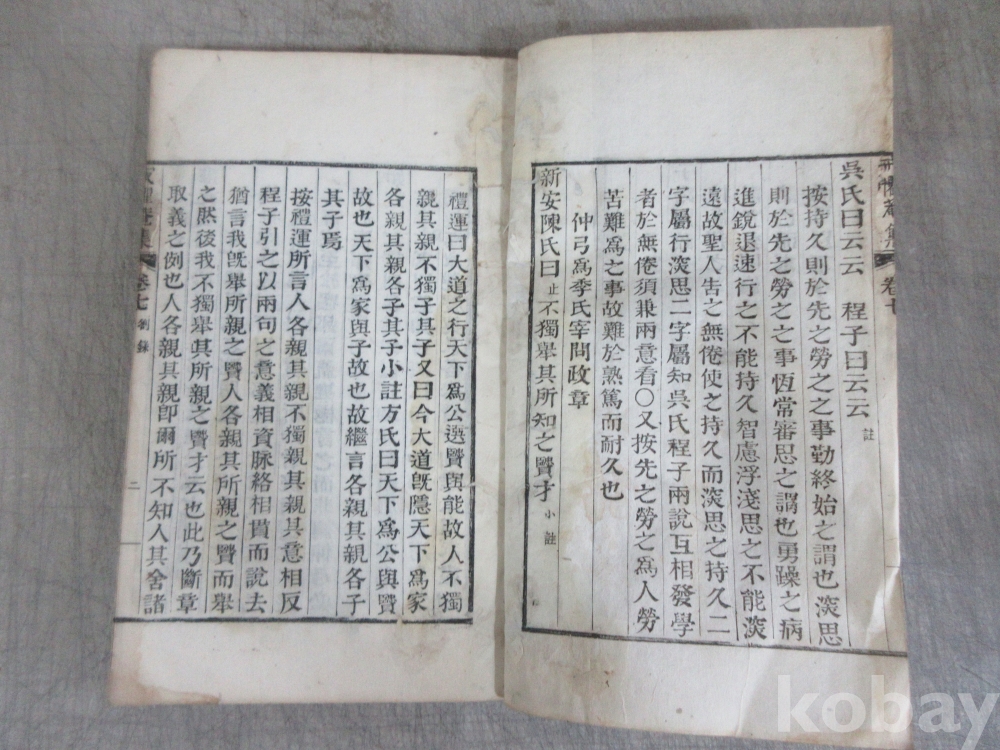 吳氏曰云云 程子曰云云 註
按持久則於先之勞之之事勤終始之謂也㴱思
則於先之勞之之事恆常審思之謂也勇躁之病
進銳退速行之不能持久智慮浮淺思之不能㴱
遠故聖人告之無倦使之持久而㴱思之持久二
字屬行㴱思二字屬知吳氏程子兩說互相發學
者於無倦須兼兩意看○又按先之勞之爲人勞
苦難爲之事故難於熟篤而耐久也
仲弓爲季氏宰問政章
新安陳氏曰止不獨舉其所知之賢才 小註
禮運曰大道之行天下爲公選賢與能故人不獨
親其親不獨子其子又曰今大道旣隱天下爲家
各親其親各子其子小註方氏曰天下爲公與賢
故也天下爲家與子故也故繼言各親其親各子
其子焉
按禮運所言人各親其親不獨親其親其意相反
程子引之以兩句之意義相資脉絡相貫而說去
猶言我旣舉所親之賢人各親其所親之賢而舉
之然後我不獨舉其所親之賢才云也此乃斷章
取義之例也人各親其親卽爾所不知人其舍諸
卷七 劄錄
二
卷七
kobay